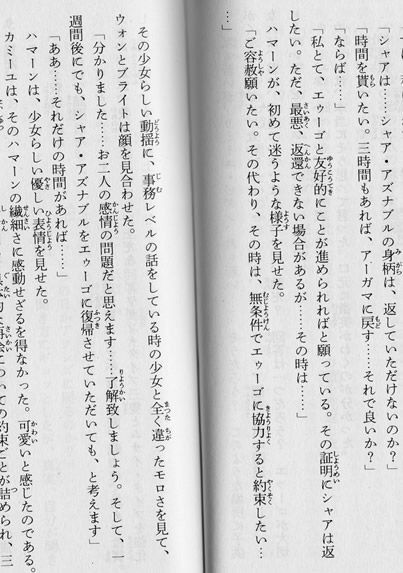 「シャアは……シャア・アズナブルの身柄は、返していただけないのか？」
「時間を貰いたい。三時間もあれば、アーガマに戻す……それで良いか？」
「ならば……」
「私とて、エゥーゴと友好的にことが進められればと願っている。その証明にシャアは返
したい。ただ、最悪、返還できない場合があるが……その時は……」
ハマーンが、初めて迷うような様子を見せた。
「ご容赦願いたい。その代わり、その時は、無条件でエゥーゴに協力すると約束したい…
…」
その少女らしい動揺に、事務レベルの話をしている時の少女と全く違ったモロさを見て、
ウォンとブライトは顔を見合わせた。
「分かりました……お二人の感情の問題だと思えます……了解致しましょう。そして、一
週間後にでも、シャア・アズナブルをエゥーゴに復帰させていただいても、と考えます」
「ああ……それだけの時間があれば……」
ハマーンは、少女らしい優しい表情を見せた。
カミーユは、そのハマーンの繊細さに感動せざるを得なかった。可愛いと感じたのである。
再会についての約束ごとが詰められ、三